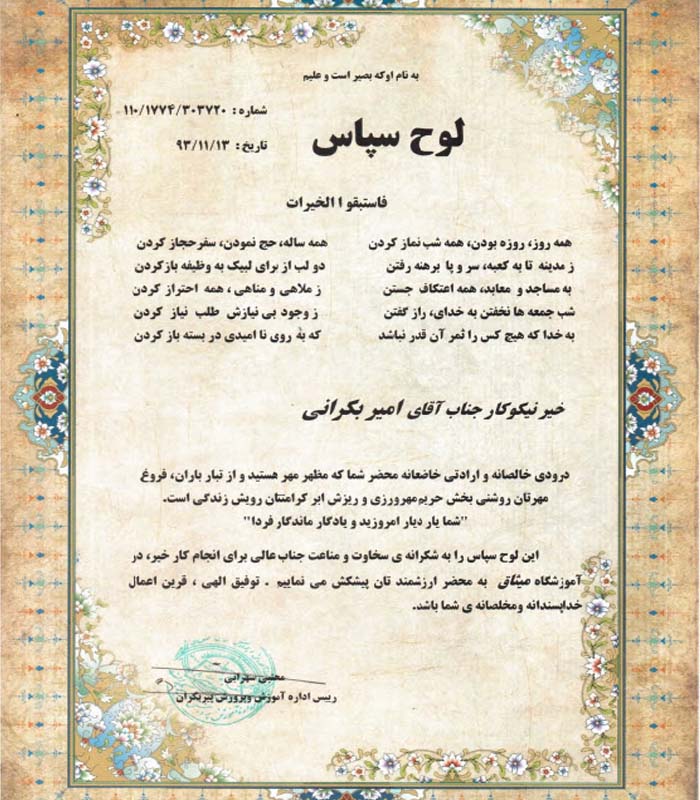 به نام او که بصیر است و علیم
شماره : ۱۱۰/۱۷۷۴/۳۰۳۷۲۰
لوح سپاس
تاریخ : ۹۳/۱۱/۱۳
فاستبقوا الخیرات
همه روز، روزه بودن، همه شب نماز کردن همه ساله، حج نمودن، سفر حجاز کردن
ز مدینه تا به کعبه، سر و پا برهنه رفتن دو لب از برای لبیک به وظیفه باز کردن
به مساجد و معابد، همه اعتکاف جستن ز ملاهی و مناهی ، همه احتراز کردن
شب جمعه ها نخفتن به خدای، راز گفتن ز وجود بی نیازش طلب نیاز کردن
به خدا که هیچ کس را ثمر آن قدر نباشد که به روی نا امیدی در بسته باز کردن
خیر نیکوکار جناب آقای امیر بکرانی
درودی خالصانه و ارادتی خاضعانه محضر شما که مظهر مهر هستید و از تبار باران، فروغ
مهرتان روشنی بخش حریم مهرورزی و ریزش ابر کرامتتان رویش زندگی است.
"شما یار دیار امروزید و یادگار ماندگار فردا"
این لوح سپاس را به شکرانه ی سخاوت و مناعت جناب عالی برای انجام کار خیر، در
آموزشگاه میثاق به محضر ارزشمند تان پیشکش می نماییم . توفیق الهی ، قرین اعمال
خداپسندانه ومخلصانه ی شما باشد.
مجتبی سهرابی
رییس اداره آموزش وپرورش پیربکران